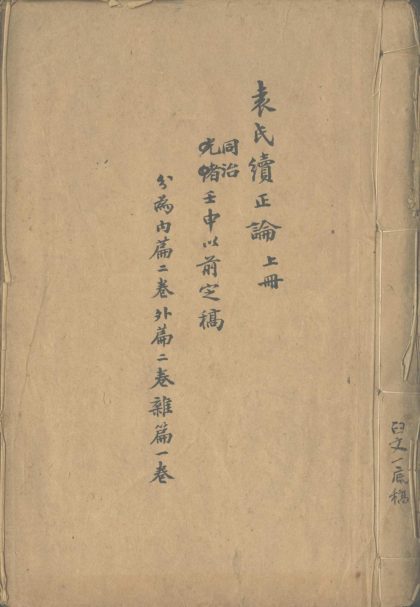 袁氏續正論 上冊
同治
光緒壬申以前定稿
分為內篇二卷外篇二卷雜篇一卷
文一底稿